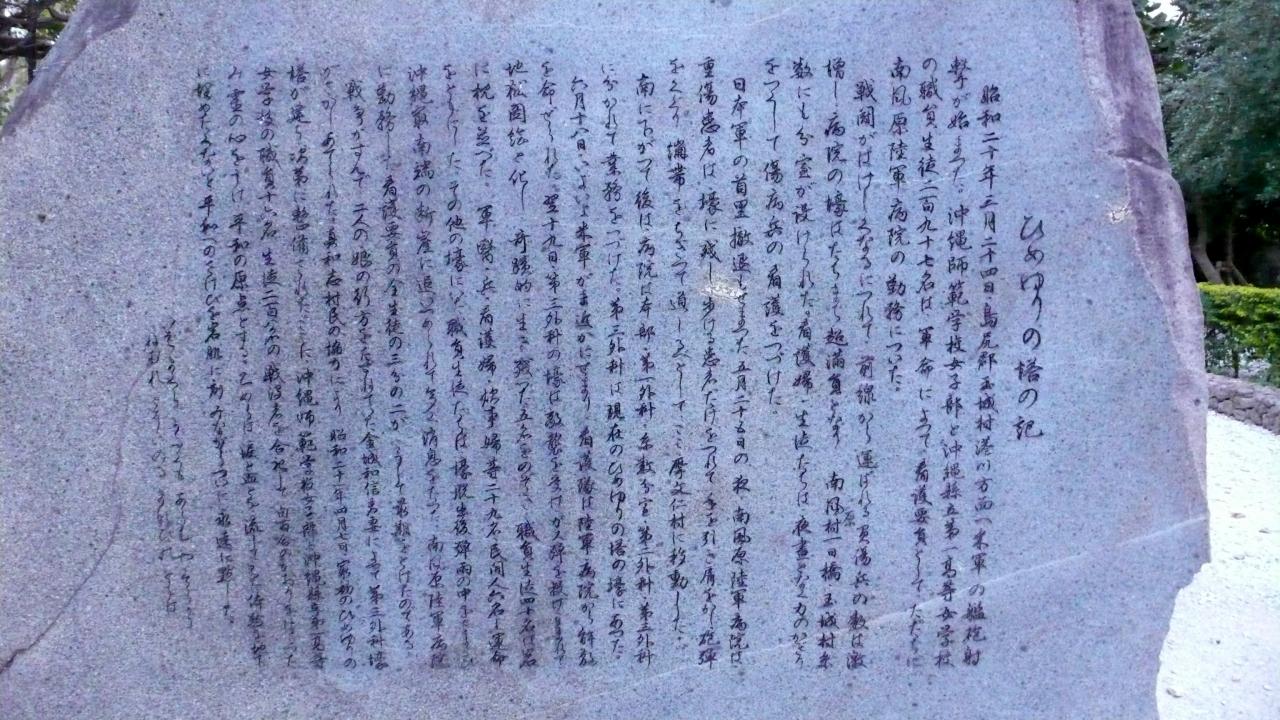 ひめゆりの塔の記
昭和二十年三月二十四日島尻郡玉城村港川方面へ米軍の艦砲射
撃が始まった。沖縄師範学校女子部と沖縄縣立第一高等女学校
の職員生徒二百九十七名は軍命によって看護要員としてただちに
南風原陸軍病院の勤務についた。
戦闘がはげしくなるにつれて前線から運ばれる負傷兵の数は激
増し病院の壕はたちまち超満員となり南風原村一日橋玉城村糸
数にも分室が設けられた。看護婦・生徒たちは夜昼となく力のかぎり
をつくして傷病兵の看護をつづけた。
日本軍の首里撤退もせまった五月二十五日の夜南風原陸軍病院は
重傷患者は壕に残し歩ける患者だけをつれて手を引き肩をかし砲弾
をくぐり繃帯をちぎって道しるべとしてここ摩文仁村に移動した。
南にさがって後は病院は本部・第一外科・糸数分室・第二外科・第三外科
にわかれて業務をつづけた。第三外科は現在のひめゆりの塔の壕にあった。
六月十八日いよいよ米軍がま近かにせまり看護隊は陸軍病院から解散
を命ぜられた。翌十九日第三外科の壕は敵襲を受けガス弾を投げ込まれて
地獄図絵と化し奇蹟的に生き残った五名をのぞき職員生徒四十名は岩
に枕を並べた。軍醫・兵・看護婦・炊事婦等二十九名民間人六名も運命
をともにした。その他の壕にいた職員生徒たちは壕脱出後弾雨の中をさまよい
沖縄最南端の断崖に追いつめられて多く消息をたった。南風原陸軍病院
に勤務した看護要員の全生徒の三分の二がこうして最期をとげたのである。
戦争がすんで二人の娘の行方をたずねてきた金城和信夫妻によって第三外科壕
がさがしあてられた。真和志村民の協力により昭和二十一年四月七日最初のひめゆりの
塔が建ち次第に整備された。ここに沖縄師範学校女子部・沖縄縣立第一高等
女学校の職員十六名生徒二百余の戦没者を合祀して
み霊の心をうけ平和の原点とする。
に埋めた平和へのさけびを岩肌に刻みながらついに永遠に黙した。
いはまくら かたくもあらん やすらかに
ねむれとぞいのる まなびのともは